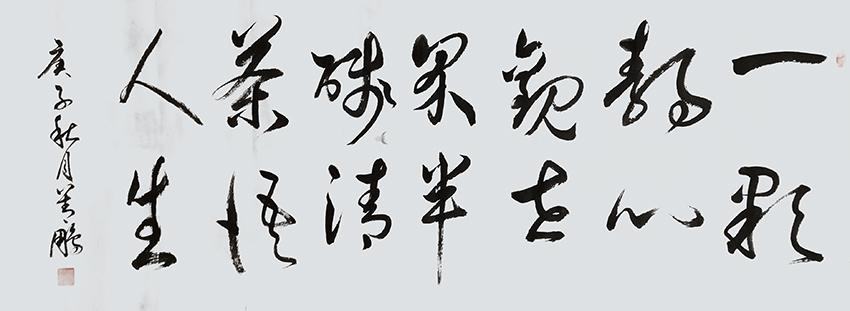 一颗
静心
觀世
界半
盏清
茶悟
人生
庚子秋月